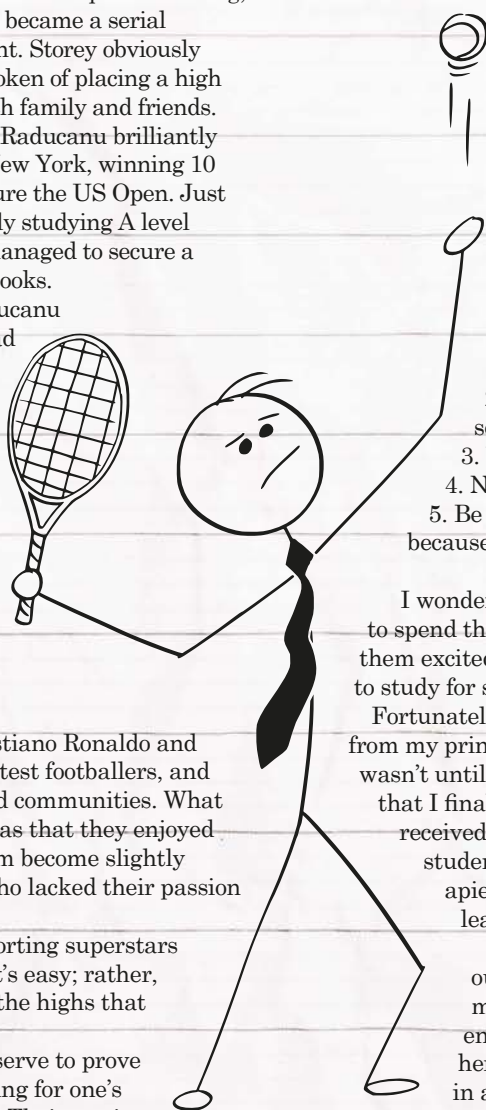 became a serial
nt. Storey obviously
oken of placing a high
h family and friends.
Raducanu brilliantly
ew York, winning 10
ure the US Open. Just
ly studying A level
anaged to secure a
ooks.
ucanu
d
stiano Ronaldo and
test footballers, and
d communities. What
as that they enjoyed
m become slightly
ho lacked their passion
orting superstars
t's easy; rather,
the highs that
serve to prove
ng for one's
3.
4. N
5. Be
because
I wonde
to spend th
them excited
to study for s
Fortunatel
from my prin
wasn't until
that I fina
received
studen
apie
lea
ou
m
en
her
in a